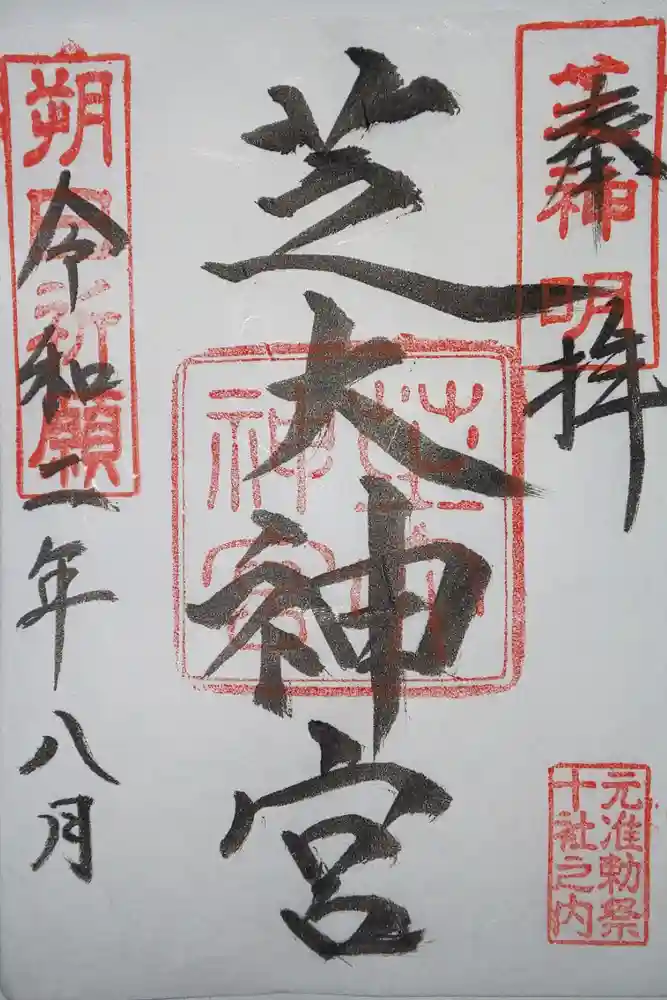 奉拝
芝神明
芝大神宮
元准勅祭
十社之内
朔日祈願
令和二年八月